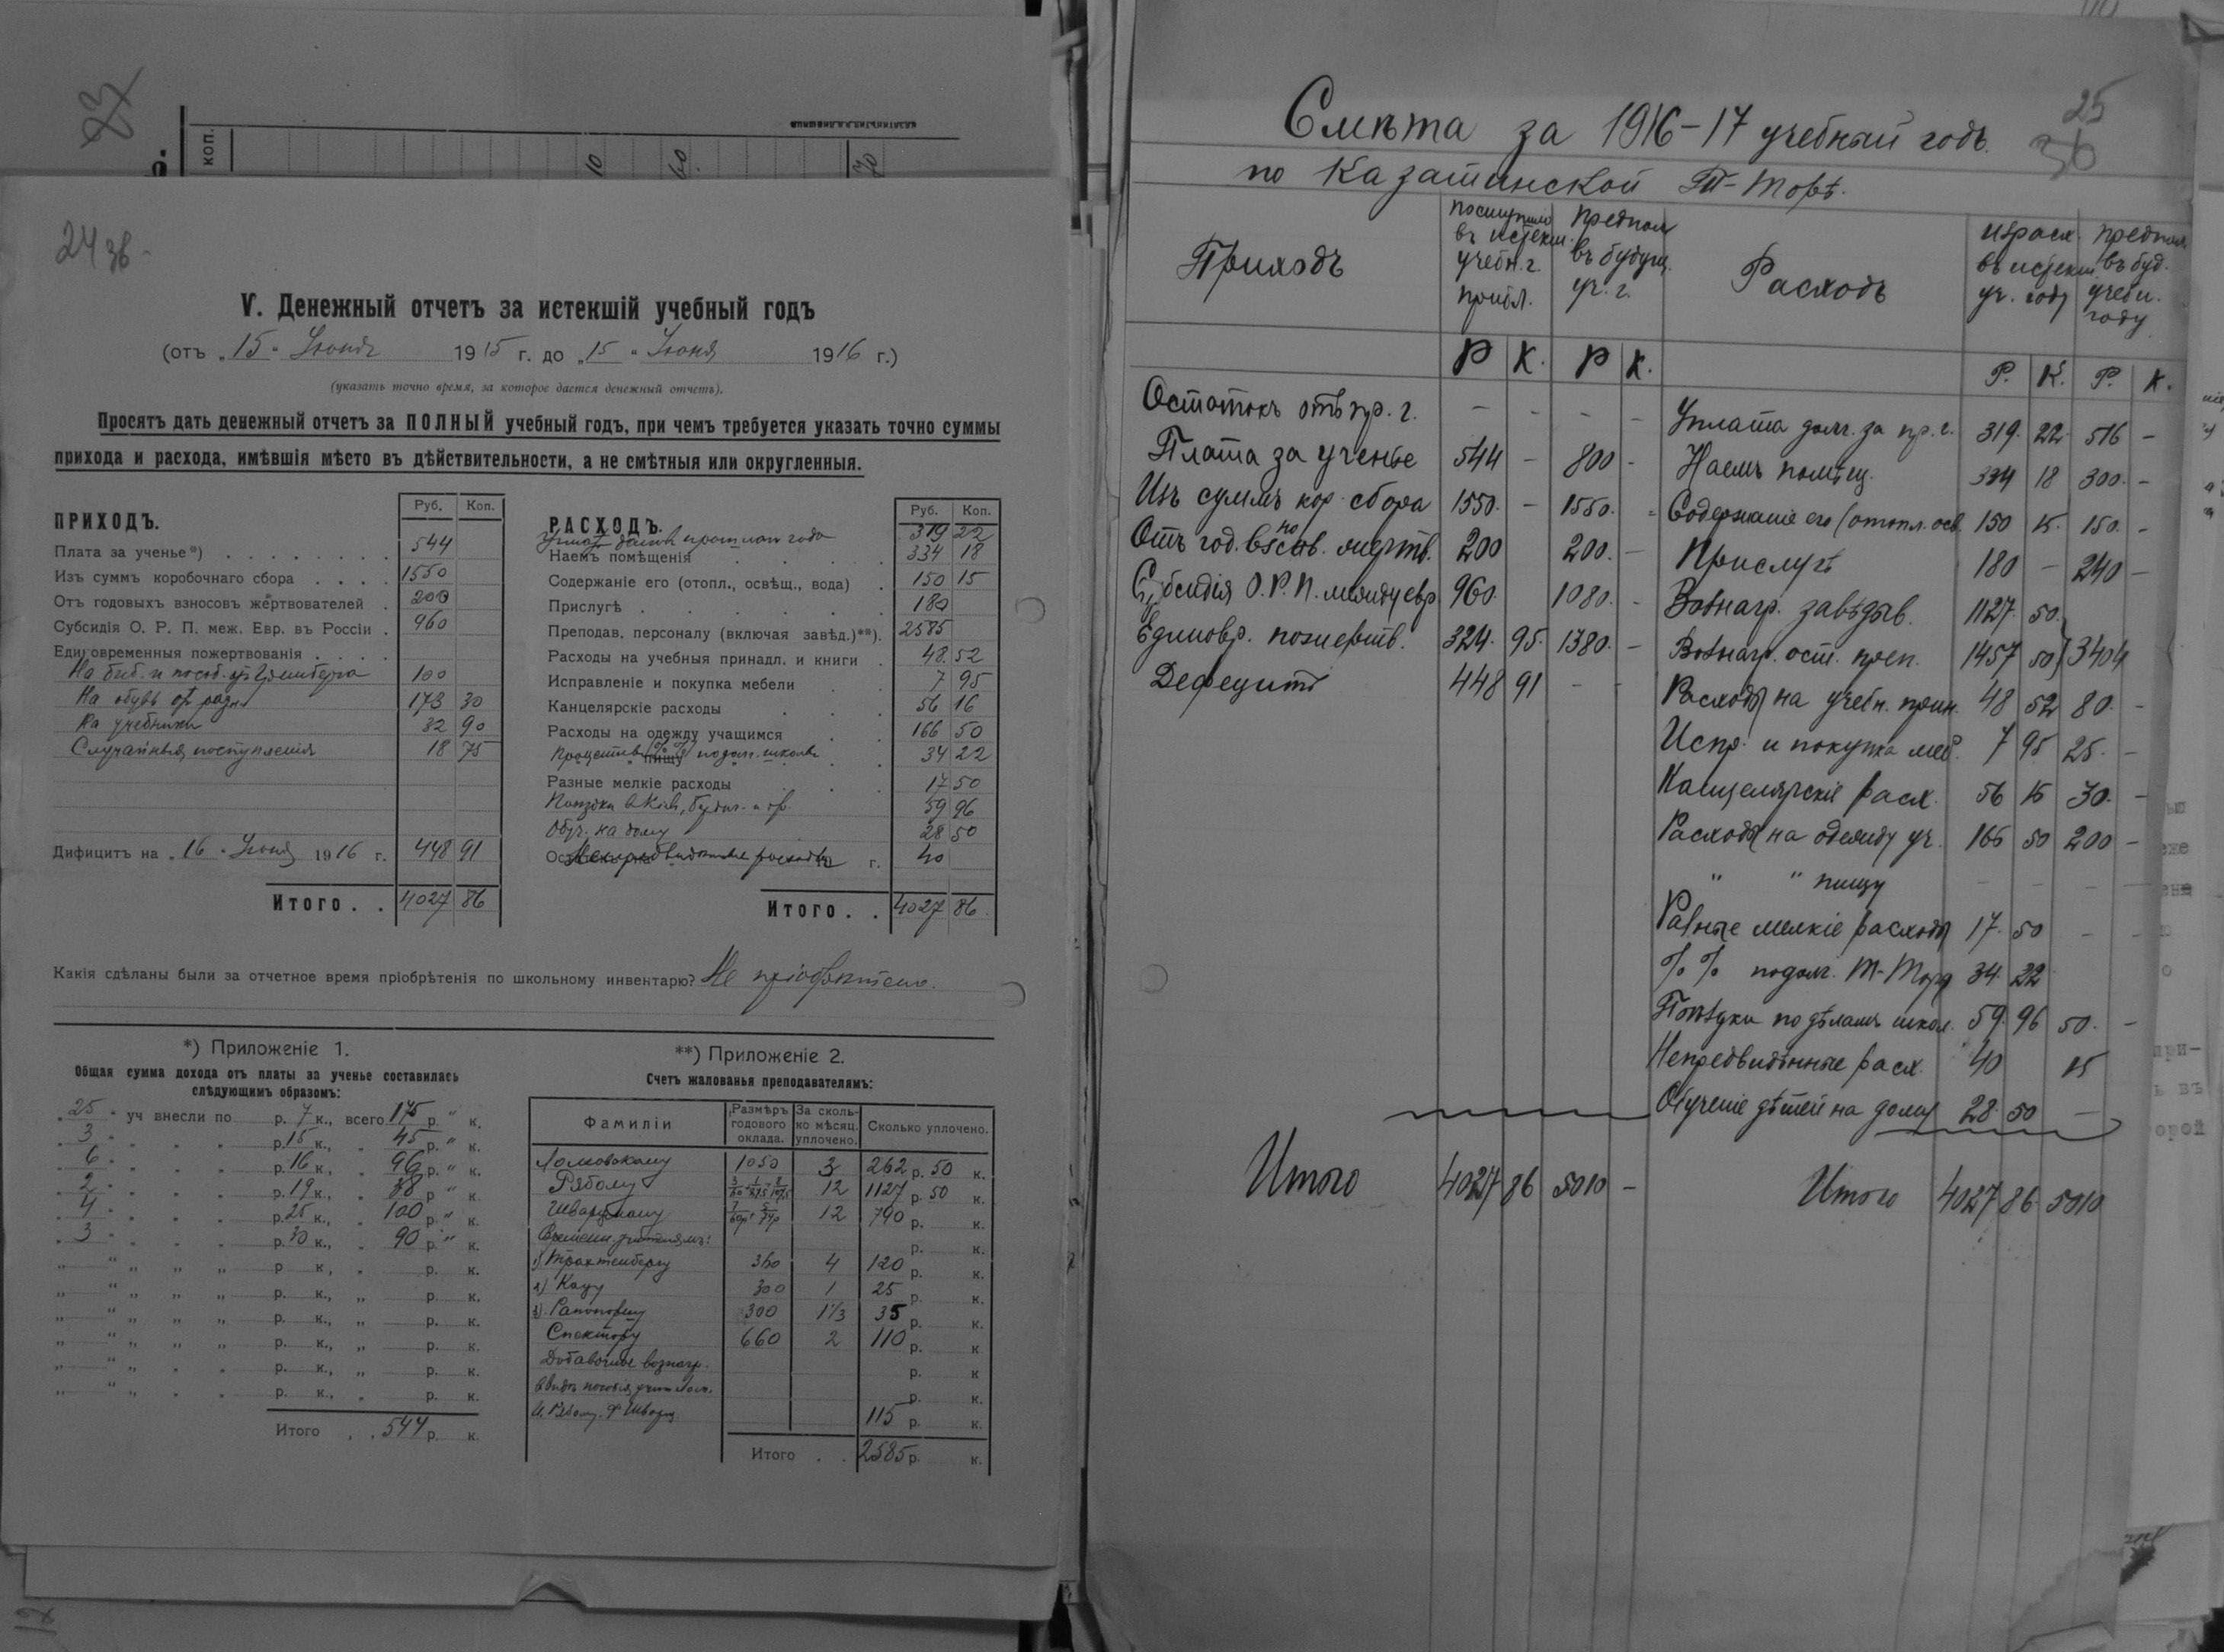 коп.
10
60.
24 зв.
V. Денежный отчетъ за истекшій учебный годъ
(отъ „15“ Іюня 1915 г. до „15“ Іюня 1916 г.)
(указать точно время, за которое дается денежный отчетъ).
Просятъ дать денежный отчетъ за ПОЛНЫЙ учебный годъ, при чемъ требуется указать точно суммы
прихода и расхода, имѣвшія мѣсто въ дѣйствительности, а не смѣтныя или округленныя.
ПРИХОДЪ. Руб. Коп.
Плата за ученье*) 544
Изъ суммъ коробочнаго сбора 1550
Отъ годовыхъ взносовъ жертвователей 200
Субсидія О. Р. П. меж. Евр. въ Россіи 960
Единовременыя пожертвованія
На биб. и пособ. 100
На обувь от разн. 173 30
На учебники 32 90
Случайныя поступленія 18 75
Дифицитъ на „16“ Іюня 1916 г. 448 91
Итого . . 4027 86
РАСХОДЪ. Руб. Коп.
Уплат долгов прошлаго года 319 22
Наемъ помѣщенія 334 18
Содержаніе его (отопл., освѣщ., вода) 150 15
Прислугѣ 180
Преподав. персоналу (включая завѣд.)**) 2585
Расходы на учебныя принадл. и книги 48.52
Исправленіе и покупка мебели 7 95
Канцелярскіе расходы 56 16
Расходы на одежду учащимся 166 50
Процентов (% %) подолг. школы 34 22
Разные мелкіе расходы 17 50
Поѣздки в Кіев, 59 96
Обуч. на дому 28 50
Непредвидѣнные расходы г. 40
Итого . . 4027 86
Какія сдѣланы были за отчетное время пріобрѣтенія по школьному инвентарю? Не пріобрѣтено.
*) Приложеніе 1.
Общая сумма дохода отъ платы за ученье составилась
слѣдующимъ образомъ:
„25“ уч внесли по р. 7 к., всего 175 р. „ к.
3 р. 15 к., 45 р. „ к.
6 р. 16 к., 96 р. „ к.
2 р. 19 к., 38 р. „ к.
4 р. 25 к., 100 р. „ к.
3 р. 30 к., 90 р. „ к.
„ „ „ „ р. к., р. к.
„ „ „ „ р. к., „ р. к.
„ „ „ „ р. к., „ р. к.
„ „ „ „ р. к., „ р. к.
„ „ р. к., „ р. к.
„ „ р. к., р. к.
Итого . . 544 р. к.
**) Приложеніе 2.
Счетъ жалованья преподавателямъ:
Фамиліи Размѣръ годового оклада. За сколько мѣсяц. уплочено. Сколько уплочено.
Ломовскому 1050 3 262 р. 50 к.
Рябому 12 1127 р. 50 к.
Шварцману 12 790 р. к.
Времени. учителямъ: р. к.
1) Трахтенбергу 360 4 120 р. к.
2) Кацу 300 1 25 р. к.
3) Рапопорту 300 1 1/3 35 р. к.
Спектору 660 2 110 р. к
Добавочное вознагр. р. к
в видѣ пособія учителям. р. к.
115 р. к.
Итого . . 2585 р. к.
25
36
Смѣта за 1916-17 учебный годъ.
по Казатинской Т-Торѣ.
Приходъ Поступило въ истекш. учебн. г. прибл. Предпол въ будущ. уч. г. Расходъ Израсх. въ истекш. уч. году Предпол. въ буд. учебн. году
Р К. Р К. Р. К. Р. К.
Остатокъ отъ пр. г. – – – – Уплата долг. за пр. г. 319. 22 516 –
Плата за ученье 544 – 800 – Наемъ помѣщ. 334 18 300. –
Изъ суммъ кор. сбора 1550. – 1550. – Содержаніе его (отопл. осв. 150 15. 150. –
Отъ год. взнов. жертв. 200 200. – Прислугѣ 180 – 240 –
Субсидія О.Р.П. межиду евр 960. 1080. – Вознагр. завѣдыв. 1127. 50.
Единовр. пожертв. 324. 95. 1380. – Вознагр. ост. преп. 1457 50 } 3404
Дефецитъ 448 91 – – Расходы на учебн. прин. 48 52 80. –
Испр. и покупка меб. 7 95 25. –
Канцелярскіе расх. 56 15 30. –
Расходы на одежду уч. 166 50 200 –
" " пищу – – – –
Разные мелкіе расходы 17. 50 – –
% % подолг. Т-Торы 34. 22
Поѣздки по дѣламъ школ. 59. 96 50. –
Непредвидѣнные расх. 40 15
Обученіе дѣтей на дому 28. 50 –
Итого 4027 86 5010 – Итого 4027 86 5010